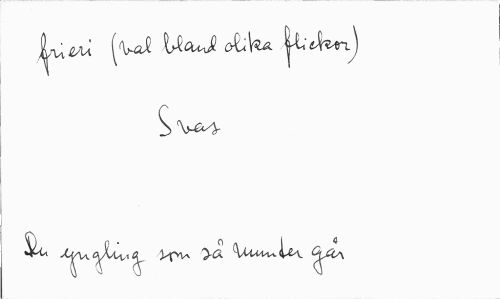 frieri (val bland olika flickor)
Svas
Du yngling som så munter går